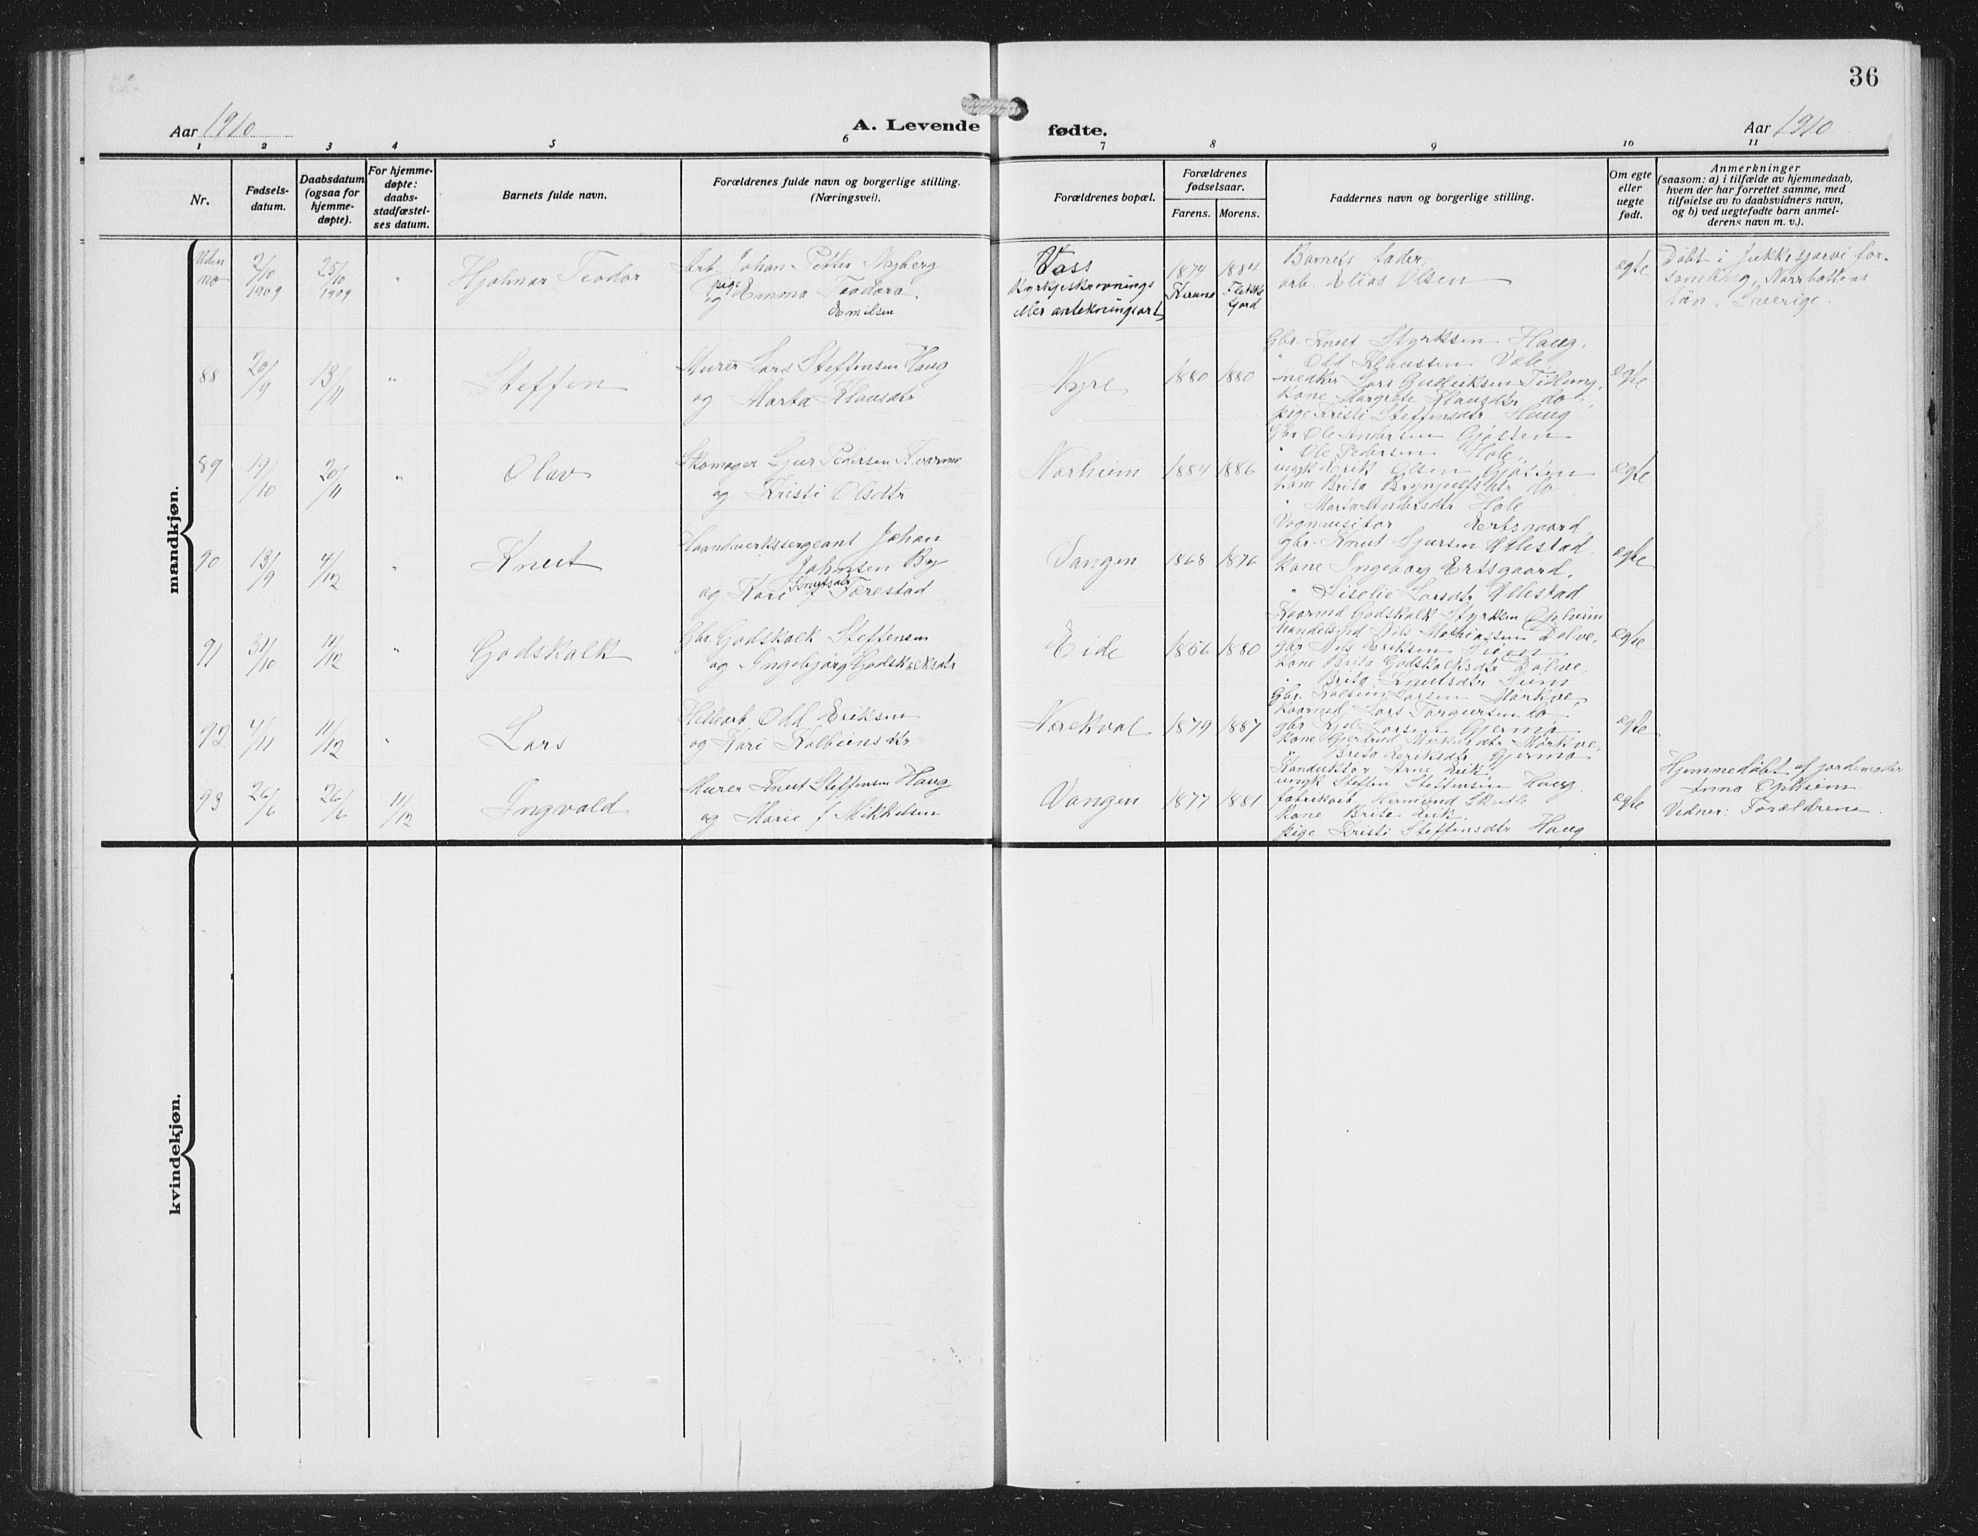 36
Aar 1910
A. Levende fødte.
Aar 1910
1 2 3 4 5 6 7 8 9 10 11
Nr.
Fødsels-
datum.
Daabsdatum
(ogsaa for
hjemme-
døpte).
For hjemme-
døpte:
daabs-
stadfæstel-
ses datum.
Barnets fulde navn.
Forældrenes fulde navn og borgerlige stilling.
(Næringsvei).
Forældrenes bopæl.
Forældrenes
fødselsaar.
Farens. Morens.
Faddernes navn og borgerlige stilling.
Om egte
eller
uegte
født.
Anmerkninger
(saasom: a) i tilfælde av hjemmedaab,
hvem der har forrettet samme, med
tilføielse av to daabsvidners navn,
og b) ved uegtefødte barn anmel-
derens navn m. v.).
mandkjøn.
Uden
no
2/10
1909
25/10
1909
"
Hjalmar Teodor
Arb. Johan Petter Nyberg
og pige Emma Teodora
Emilsen
Vass
Kyrkjeskrivnings
eller antekningsort
1874
Kiruna
1884
Flekke
fjord
Barnets fader,
arb. Elias Olsen
egte
Døbt i Jukkasjarvi for-
samling, Norrbottens
län, Sverige.
88
20/9
13/11
"
Steffen
Murer Lars Steffensen Haug
og Marta Klausdtr
Nyre
1880 1880
Gbr. Knut Styrksen Haug,
" Odd Klaussen Væle
Lars Gudleiksen Tillung,
Kone Margrete Klausdtr do,
pige Kristi Steffensdtr Haug
egte
89
19/10
20/11
"
Olav
Skomager Sjur Pedersen Kvarme
og Kristi Olsdtr
Norheim
1884 1886
Gbr. Ole Andersen Gjøsten
" Ole Pedersen Hole,
ungk. Eirik Olsen Gjøsten
Kone Brita Brynjulfsdtr do
" Marta Andersdtr Hole
egte
90
13/9
4/12
"
Knut
Haandverkssergeant Johan
Johnsen By
og Kari Knutsdtr f. Terestad
Vangen
1868 1876
Vognvisitør Ertsgaard
gbr. Knut Sjursen Ullestad
Kone Ingeborg Ertsgaard,
" Larsdtr Ullestad
egte
91
31/10
11/12
"
Godskalk
Gbr. Godskalk Steffensen
og Ingebjørg Godskalksdtr
Eide
1856 1880
Kaarmd Godskalk Styrksen Opheim
Handelsmd Nils Mathiassen Dolve,
gbr Nils Eriksen
Kone Brita Godskalksdtr Dolve
" Brita Knutsdtr
egte
92
4/11
11/12
"
Lars
Odd Eriksen
og Kari Kolbeinsdtr
Nærekval
1879 1887
Gbr. Kolbein Larsen Mørkve,
Kaarmd Lars Torgersen do
gbr. Larsen Gjerme
Kone Gjertrud Mørkve,
Brita Eiriksdtr Gjerme
egte
93
26/6
26/6
11/12
Ingvald
Murer Knut Steffensen Haug
og Marie f. Mikkelsen
Vangen
1877 1881
Konduktør Arne Eiik,
ungk Steffen Steffensen Haug,
fabrikarb. Hermund
Kone Brita Eiik,
pige Kristi Steffensdtr Haug
egte
Hjemmedøbt af jordemoder
Anna Opheim.
Vidner: Forældrene
kvindekjøn.